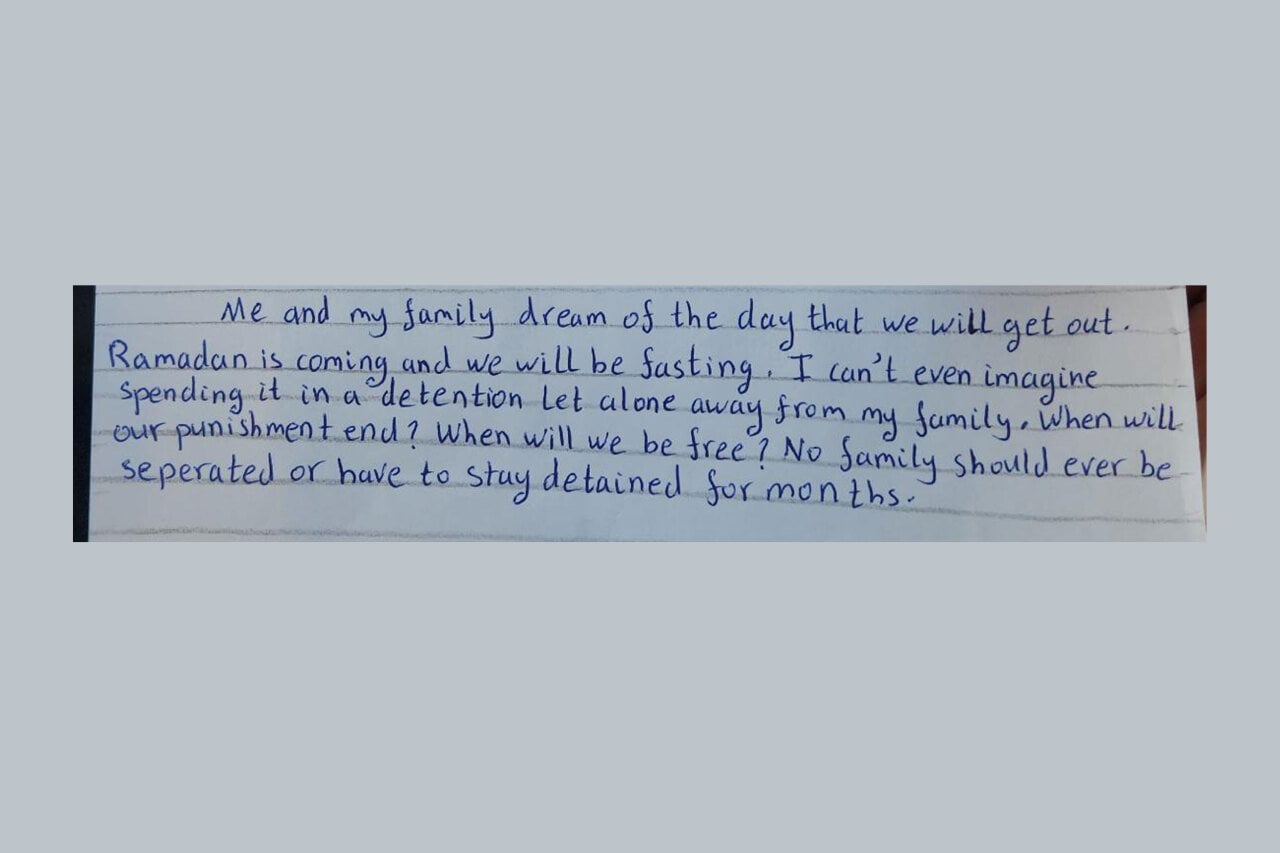 Me and my family dream of the day that we will get out.
Ramadan is coming and we will be fasting. I can't even imagine
spending it in a detention let alone away from my family. When will
our punishment end? When will we be free? No family should ever be
seperated or have to stay detained for months.